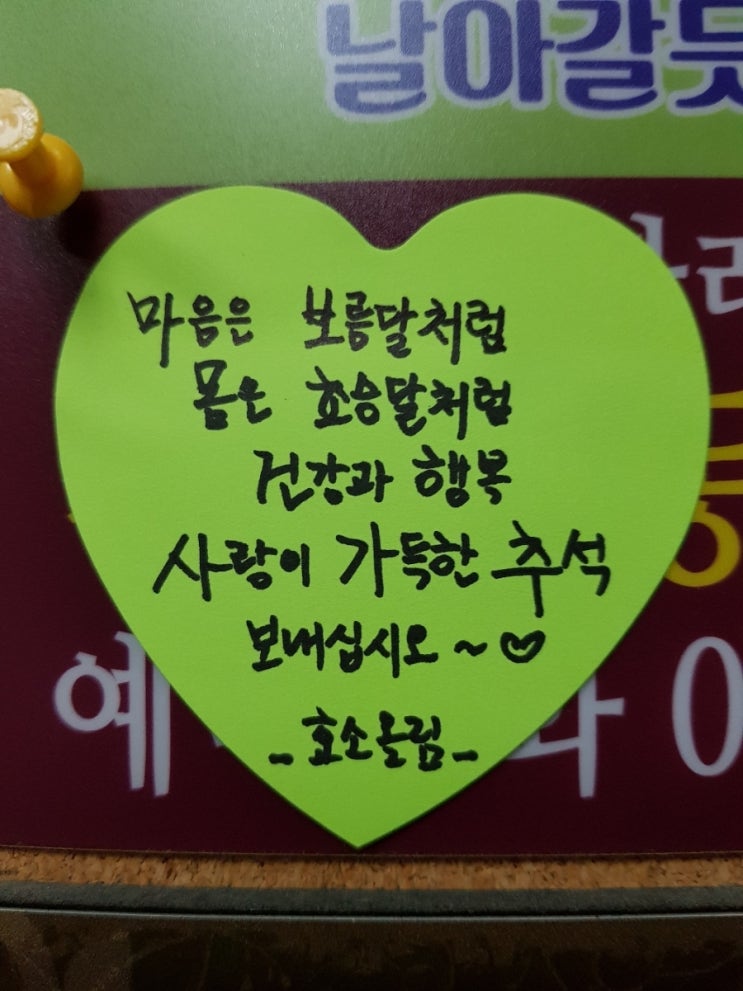 날아갈듯
마음은 보름달처럼
몸은 초승달처럼
건강과 행복
사랑이 가득한 추석
보내십시오 ~ ♡
예
- 효소올림 -